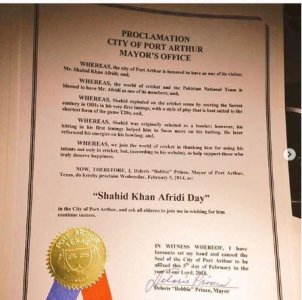 PROCLAMATION
CITY OF PORT ARTHUR
MAYOR'S OFFICE
WHEREAS, the city of Port Arthur is honored to have as one of its visitor,
Mr. Shahid Khan Afridi; and,
WHEREAS, the world of cricket and the Pakistan National Team is
blessed to have Mr. Afridi as one of its members; and,
WHEREAS, Shahid exploded on the cricket scene by scoring the fastest
century in ODIs in his very first innings, with a style of play that is best suited to the
shortest form of the game T20s; and,
WHEREAS, Shahid was originally selected as a bowler; however, his
hitting in his first innings helped him to focus more on his batting. He later
refocused his energies on his bowling, and,
WHEREAS, we join the world of cricket in thanking him for using his
talents not only in cricket, but, (according to his website), to help support those who
truly deserve happiness.
NOW, THEREFORE, I, Deloris "Bobbie" Prince, Mayor of Port Arthur,
Texas, do hereby proclaim Wednesday, February 5, 2014, as:
"Shahid Khan Afridi Day"
in the City of Port Arthur, and ask all citizens to join me in wishing for him
continue success.
IN WITNESS WHEREOF, I have
hereunto set my hand and caused the
Seal of the City of Port Arthur to be
affixed this 5th day of February in the
year of our Lord, 2014.
Deloris Prince
Deloris "Bobbie" Prince, Mayor